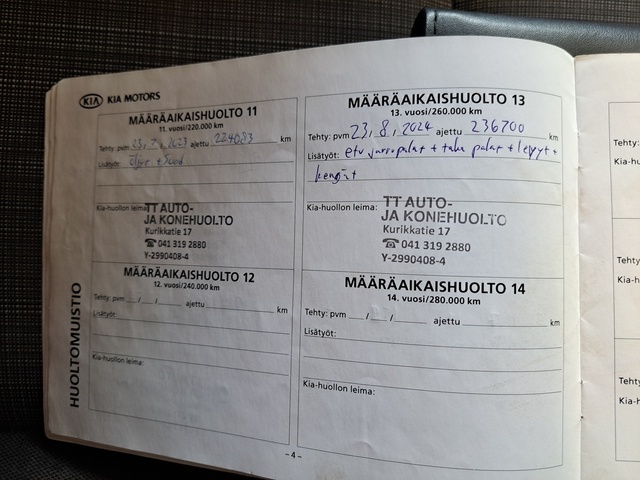 KIA KIA MOTORS
MÄÄRÄAIKAISHUOLTO 11
11. vuosi/220.000 km
Tehty: pvm 23, 7, 2023 ajettu 224083 km
Lisätyöt:
Kia-huollon leima:
TT AUTO-
JA KONEHUOLTO
Kurikkatie 17
☎ 041 319 2880
Y-2990408-4
MÄÄRÄAIKAISHUOLTO 12
12. vuosi/240.000 km
Tehty: pvm __/__/____ ajettu ____ km
Lisätyöt:
Kia-huollon leima:
MÄÄRÄAIKAISHUOLTO 13
13. vuosi/260.000 km
Tehty: pvm 23, 8, 2024 ajettu 236700 km
Lisätyöt: etu jarrupalat + taka palat + levyt +
kengät
Kia-huollon leima:
TT AUTO-
JA KONEHUOLTO
Kurikkatie 17
☎ 041 319 2880
Y-2990408-4
MÄÄRÄAIKAISHUOLTO 14
14. vuosi/280.000 km
Tehty: pvm __/__/____ ajettu ____ km
Lisätyöt:
Kia-huollon leima:
HUOLTOMUISTIO
- 4 -
Tehty
Kia-h
Tehty:
Kia-h
Tehty
Kia-h